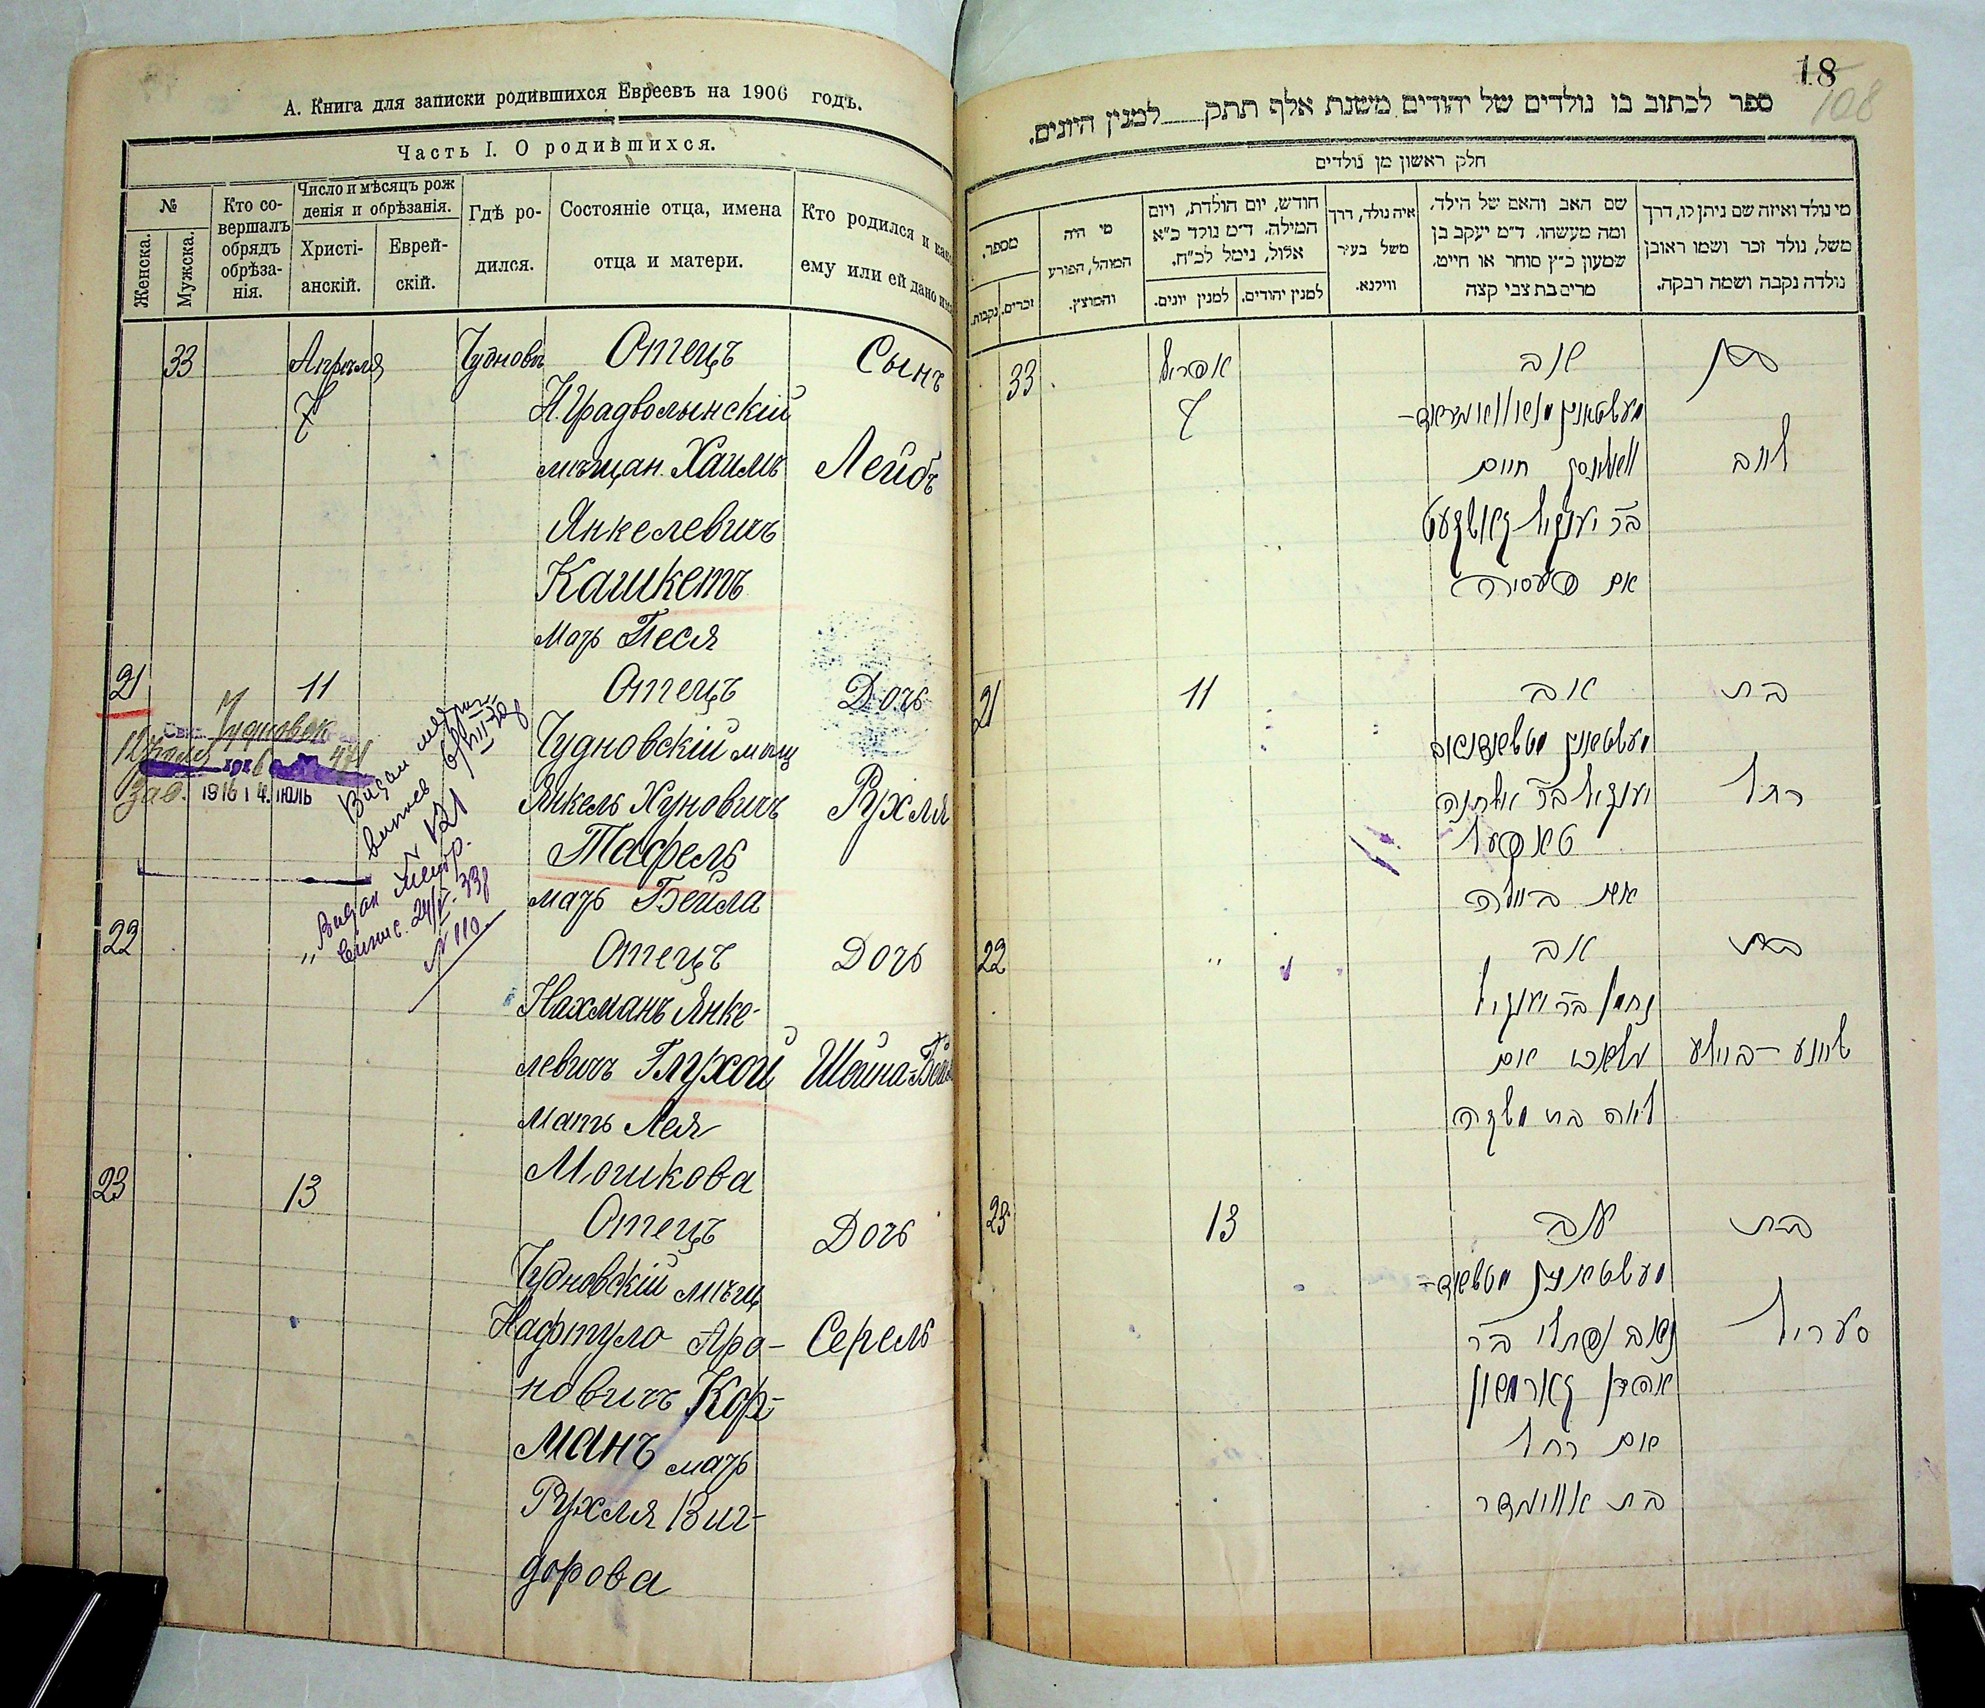 А. Книга для записки родившихся Евреевъ на 1906 годъ.
Часть I. О родившихся.
№
Женска.
Мужска.
Кто совершалъ обрядъ обрѣзанія.
Число и мѣсяцъ рожденія и обрѣзанія.
Христіанскій.
Еврейскій.
Гдѣ родился.
Состояніе отца, имена отца и матери.
Кто родился и како
ему или ей дано имя
33 Апрѣля Чудновъ Отецъ Сынъ
7 Н. Градволынскій
мѣщан. Хаимъ Лейбъ
Янкелевичъ
Кашкетъ
мать Песя
21 11 Отецъ Дочь
Чудновскій мѣщ
Янкель Хуновичъ Рухля
Тафель
мать Бейла
1916 4. ІЮЛЬ
Видан метр.
выпись
№ 121
Видан метр.
випис.
№ 110
22 " Отецъ Дочь
Нахманъ Янке-
левичъ Глухой Шейна-Бей
мать Лея
Мошкова
23 13 Отецъ Дочь
Чудновскій мѣщ
Нафтуло Аро- Серель
новичъ Кор-
манъ мать
Рухля Виг-
дорова
18
108
ספר לכתוב בו נולדים של יהודים משנת אלף תתק למנין היונים.
חלק ראשון מן נולדים
מי נולד ואיזה שם ניתן לו, דרך
משל, נולד זכר ושמו ראובן
נולדה נקבה ושמה רבקה.
שם האב והאם של הילד,
ומה מעשהו. ד״מ יעקב בן
שמעון כ״ץ סוחר או חייט,
מרים בת צבי קצה
איה נולד, דרך
משל בעיר
ווילנא.
חודש, יום הולדת, ויום
המילה. ד״מ נולד כ״א
אלול, נימל לכ״ח.
למנין יהודים.
למנין יונים.
מי היה
המוהל, הפורע
והמוצץ.
מספר.
זכרים.
נקבות.
33 אפריל אב בן
7
חיים לייב
בר יענקיל קאשקעט
אם פעסיה
21 11 אב בת
יענקיל בר רחל
טאפעל
אם ביילה
22 " אב בת
נחמן בר יענקיל
אם שיינע-ביילע
לאה בת משקה
23 13 אב בת
נפתלי בר סעריל
אהרן קארמאן
אם רחל
בת אוויגדר